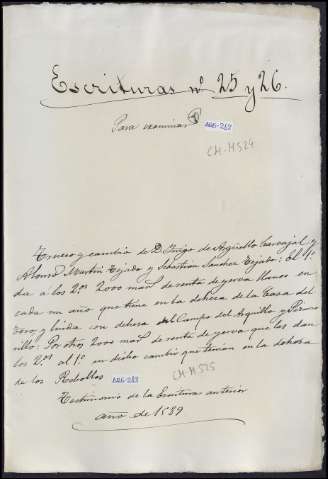 Escrituras nº 25 y 26.
Para examinar
A26-212
CH-H524
Trueco y cambio de D. Iñigo de Argüello Carvajal y
Alonso Martin Tejado y Sebastian Sanchez Tejado: El 1º
dio a los 2os 2000 mas de renta de yerva llanos en
cada un año que tiene en la dehesa de la Casa del
Zoro y linda con dehesa del Campo del Aguilla y
rillo: Por otros 2000 mas de renta de yerva que les dan
los 2os al 1º en dicho cambio que tenian en la dehesa
de los Rebollos
A26-213
CH-H525
Testimonio de la Escritura anterior
año de 1589